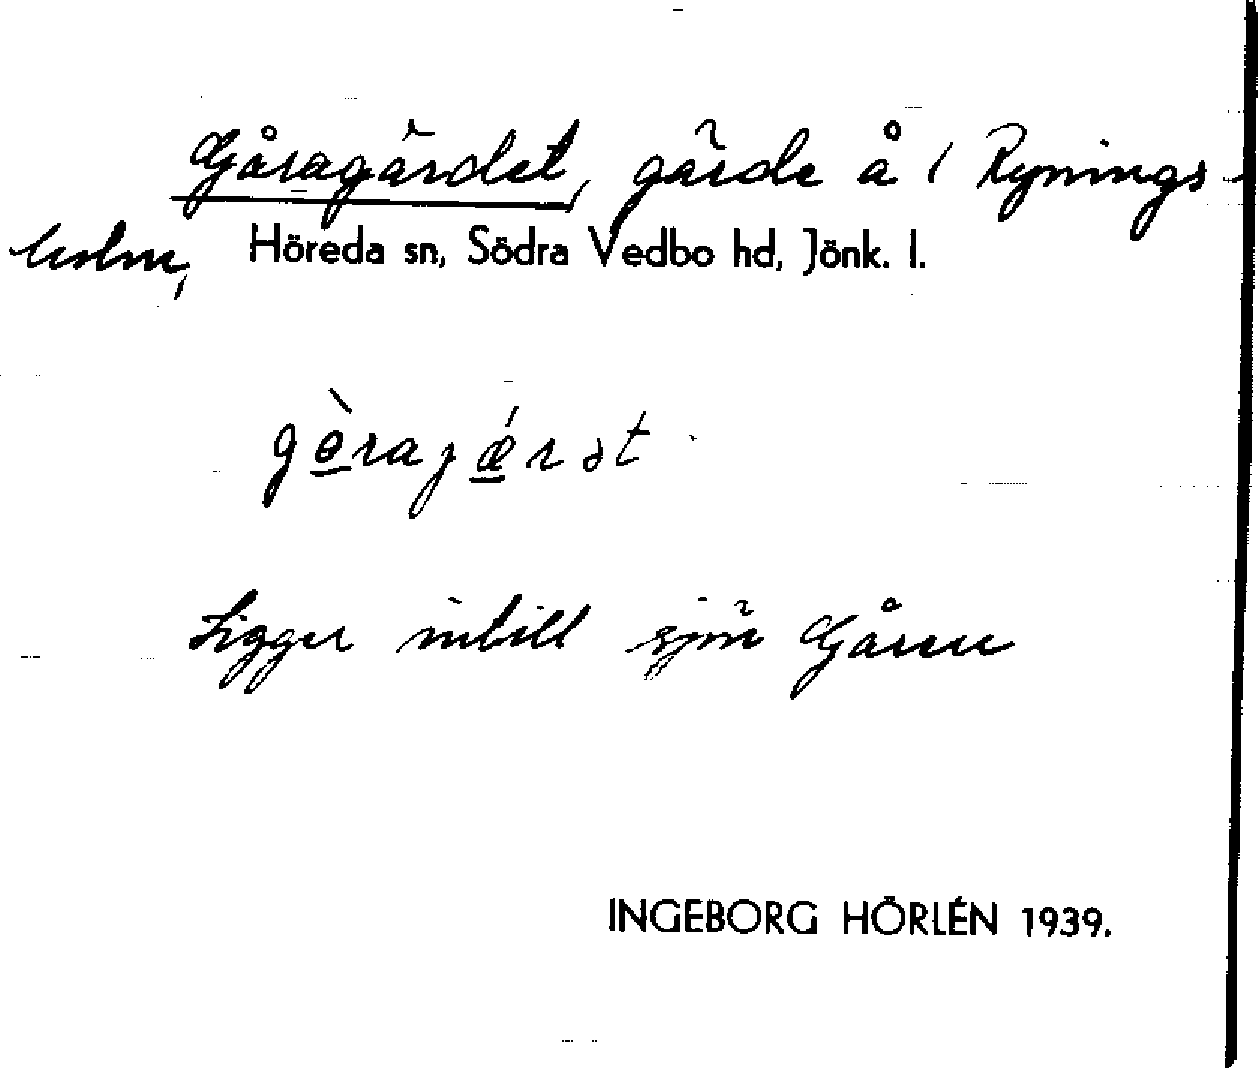 Gåragärdet, gärde å / Rynings-
holm, Höreda sn, Södra Vedbo hd, Jönk. l.
gèrajǽrət
Ligger intill sjön Gåren
INGEBORG HÖRLÉN 1939.